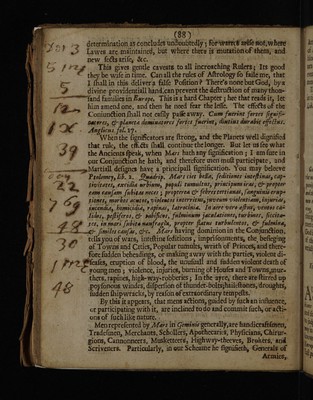 (88)
determination as concludes undoubtedly; for warrs arise not, where
Lawes are maintained, but where there is mutation of them, and
new sects arise, &c.
This gives gentle caveats to all increaching Rulers; Its good
they be wise in time. Can all the rules of Astrology so faile me, that
I shall in this deliver a false Position? There's none but God, by a
divine providentiall hand, can prevent the destruction of many thou-
sand families in Europe. This is a hard Chapter; hee that reads it, let
him amend one, and then he need fear the lesse. The effects of the
Conjunction shall not easily passe away. Cum fuerint fortes significa-
tores, & planeta dominatores fortes fuerint, diutius durabit effectus.
Anglicus fol. 37.
When the significators are strong, and the Planets well dignified
that rule, the effects shall continue the longer. But let us see what
the Ancients speak, when Mars hath any signification; I am sure in
our Conjunction he hath, and therefore men must participate, and
Martiall designes have a principall signification. You may beleeve
Ptolomey, lib. 2. Quadrip. Mars ciet bella, seditiones intestinas, cap-
tivitates, excidia urbium, populi tumultus, principum iras, & propter
eam causam subitas neces; praeterea & febres tertianas, sanguinis erup-
tiones, morbos acutos, violentas interitus juvenum violentiam, injurias,
incendia, homicidia, rapinas, latrocinia. In aere vero æstus, ventos ca-
lidos, pestiferos, & tabificos, fulminum jaculationes, turbines, siccita-
tes, in mari subita naufragia, propter flatus turbulentos, & fulmina,
& similes causas, &c. Mars having dominion in the Conjunction,
tells you of wars, intestine seditions, imprisonments, the besieging
of Towns and Cities, Popular tumults, wrath of Princes, and there-
fore sudden beheadings, or making away with the parties, violent di-
seases, eruption of blood, the unusuall and sudden violent death of
young men; violence, injuries, burning of Houses and Towns, mur-
thers, rapines, high-way-robberies; In the ayre, there are stirred up
poysonous windes, dispersion of thunder-bolts, haile-stones, droughts,
sudden shipwracks, by reason of extraordinary tempests.
By this it appears, that mens actions, guided by such an influence,
or participating with it, are inclined to do and commit such, or acti-
ons of such like nature.
Men represented by Mars in Geminie generally, are handicraftsmen,
Tradesmen, Merchants, Schollers, Apothecaries, Physicians, Chirur-
gions, Cannoneers, Musketteers, Highway-theeves, Brokers, and
Scriveners. Particularly, in our Scheame he signifieth, Generals of
Armies,
5
12
39
22
48
30
48